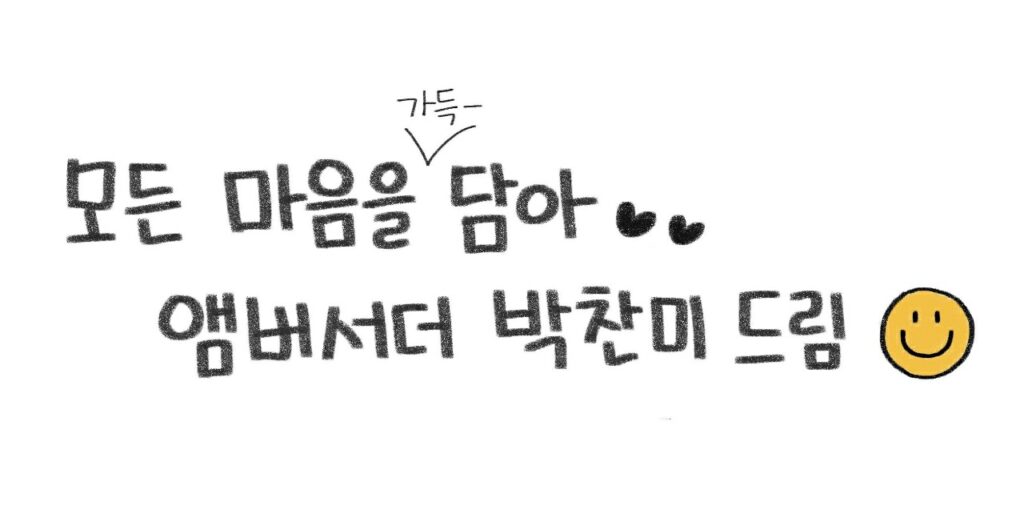 가득-
모든 마음을 담아
앰버서더 박찬미 드림